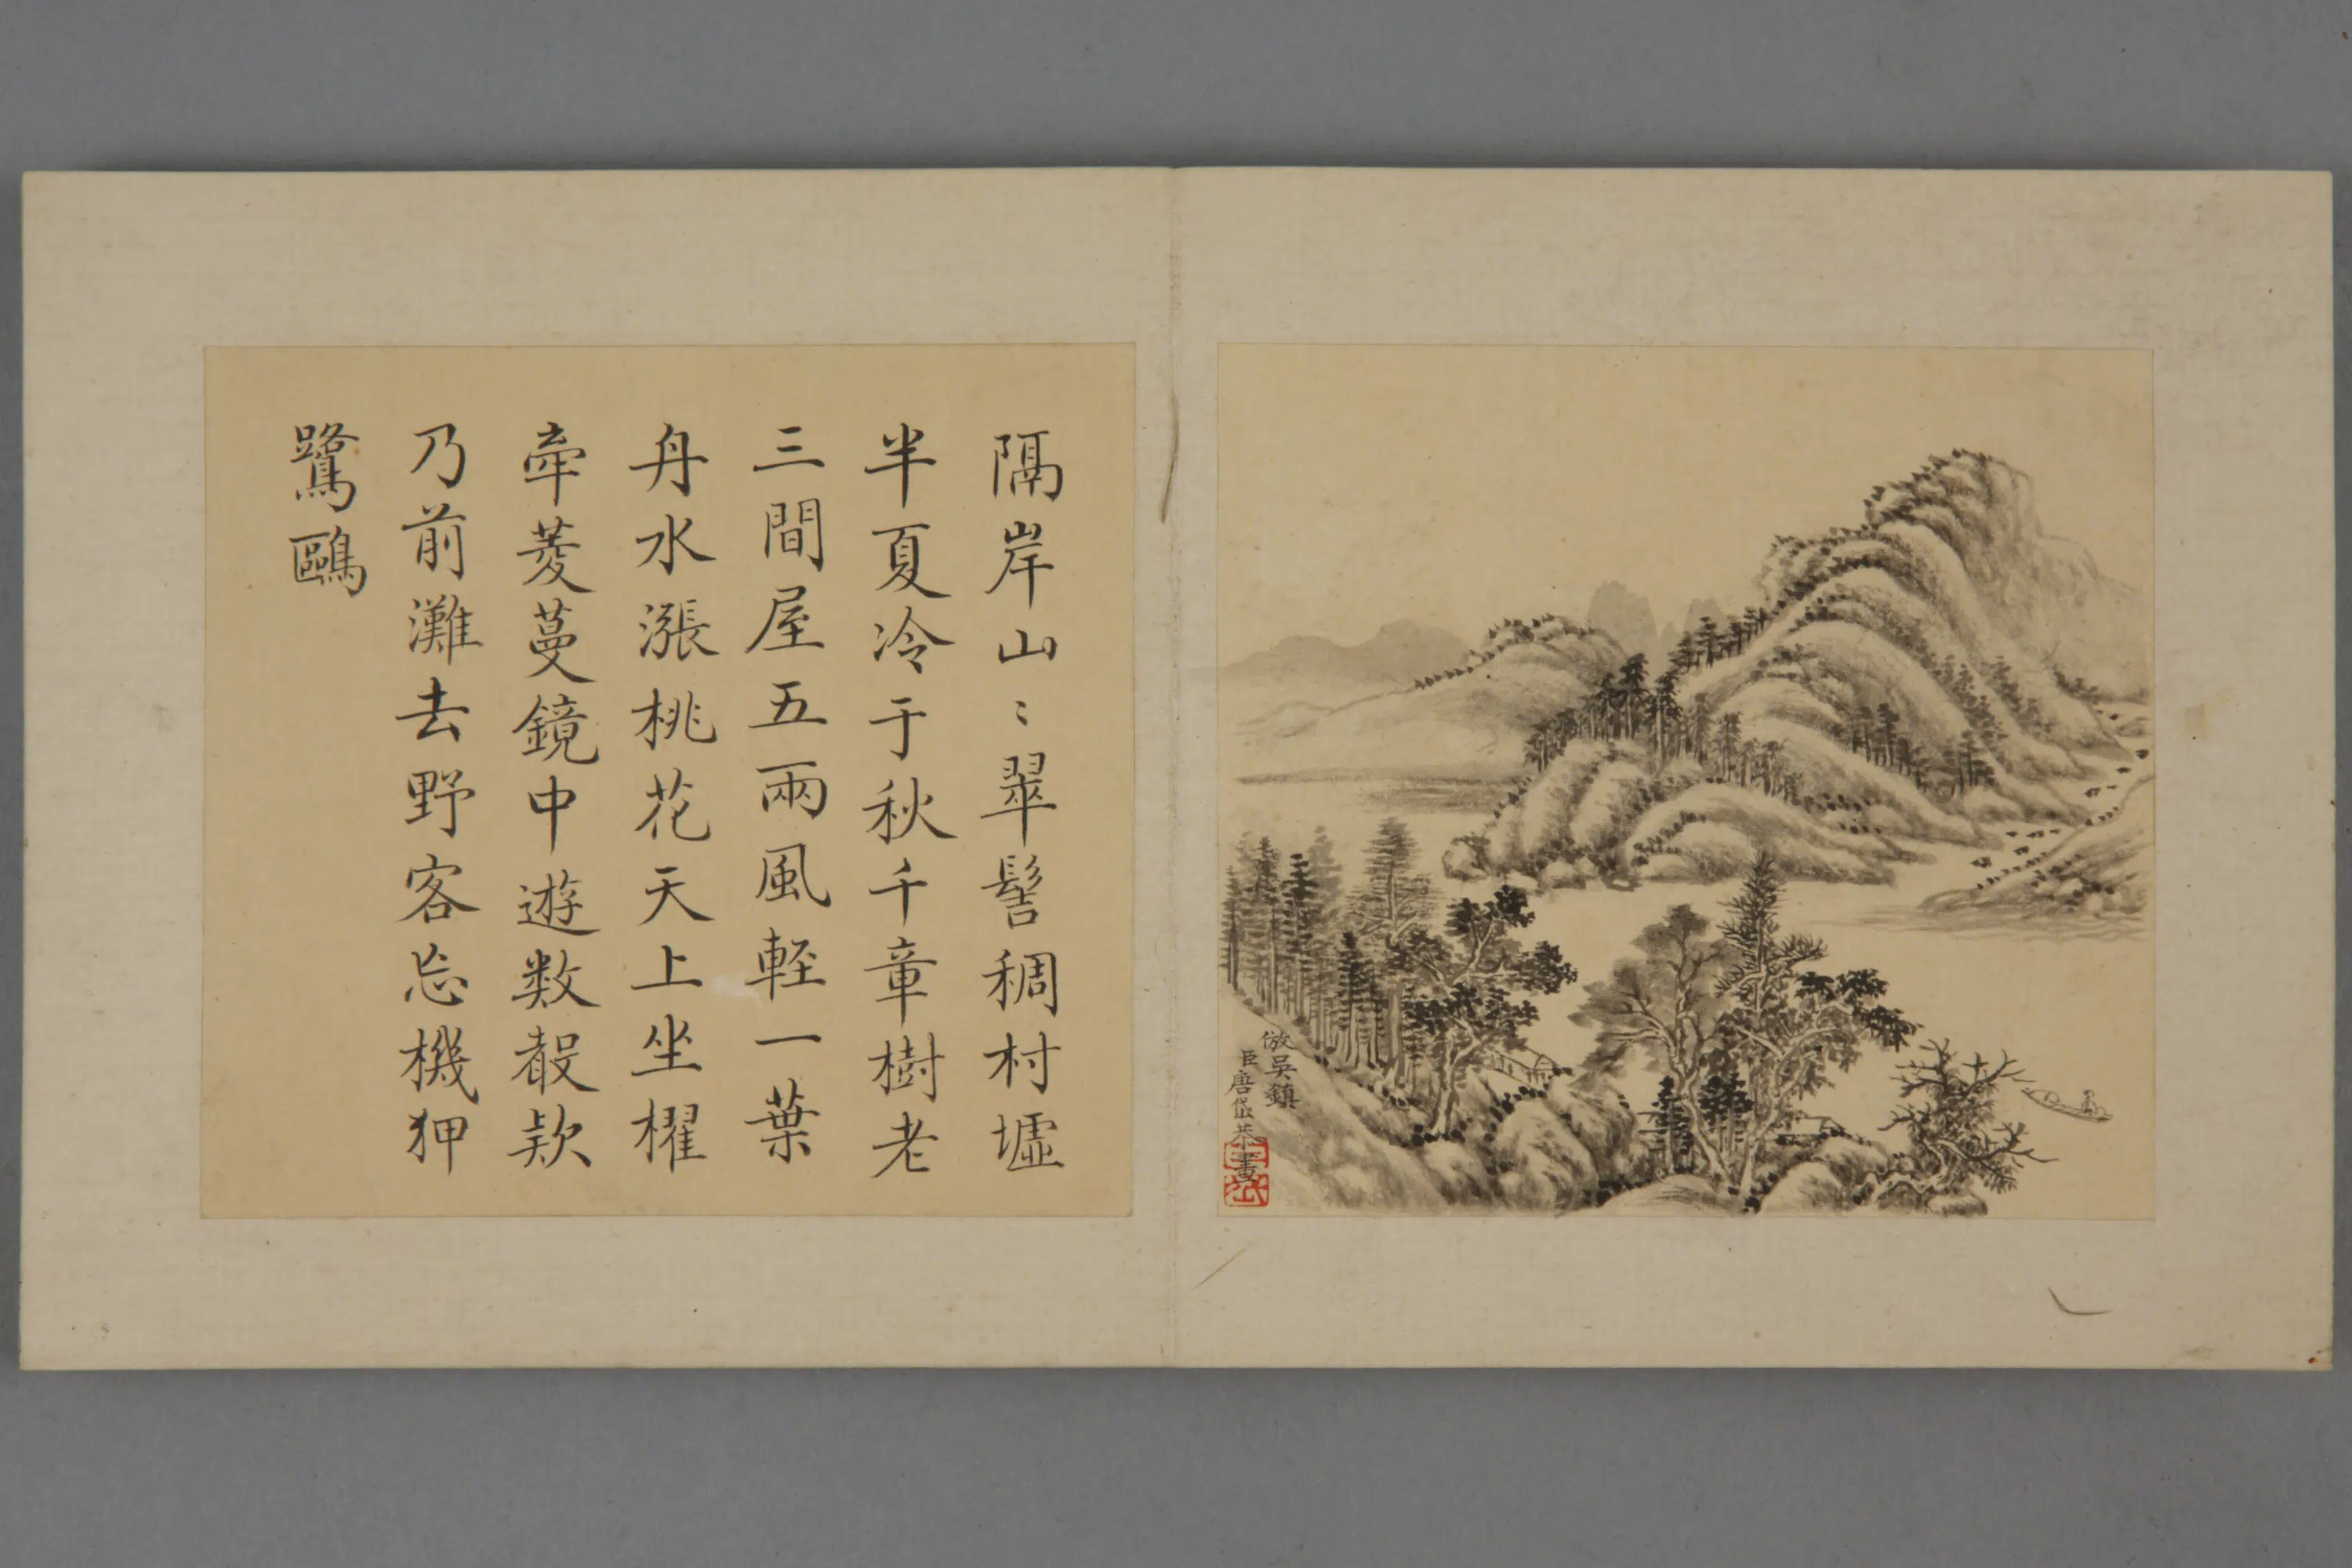 隔岸山〻翠髻稠村墟
半夏冷于秋千章樹老
三間屋五兩風輕一葉
舟水漲桃花天上坐櫂
牽菱蔓鏡中遊数聲欵
乃前灘去野客忘機狎
鷺鷗
倣吳鎮
臣唐岱恭畫